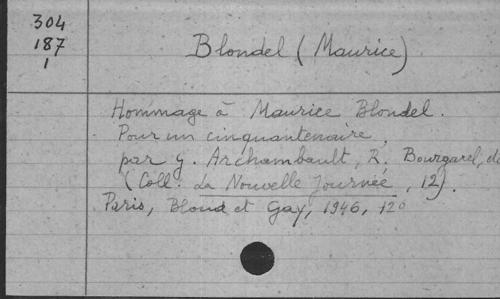 304
187
1
Blondel (Maurice)
Hommage à Maurice Blondel.
Pour un cinquantenaire,
par G. Archambault, R. Bourgarel, de
(Coll. La Nouvelle Journée, 12).
Paris, Bloud et Gay, 1946, 126